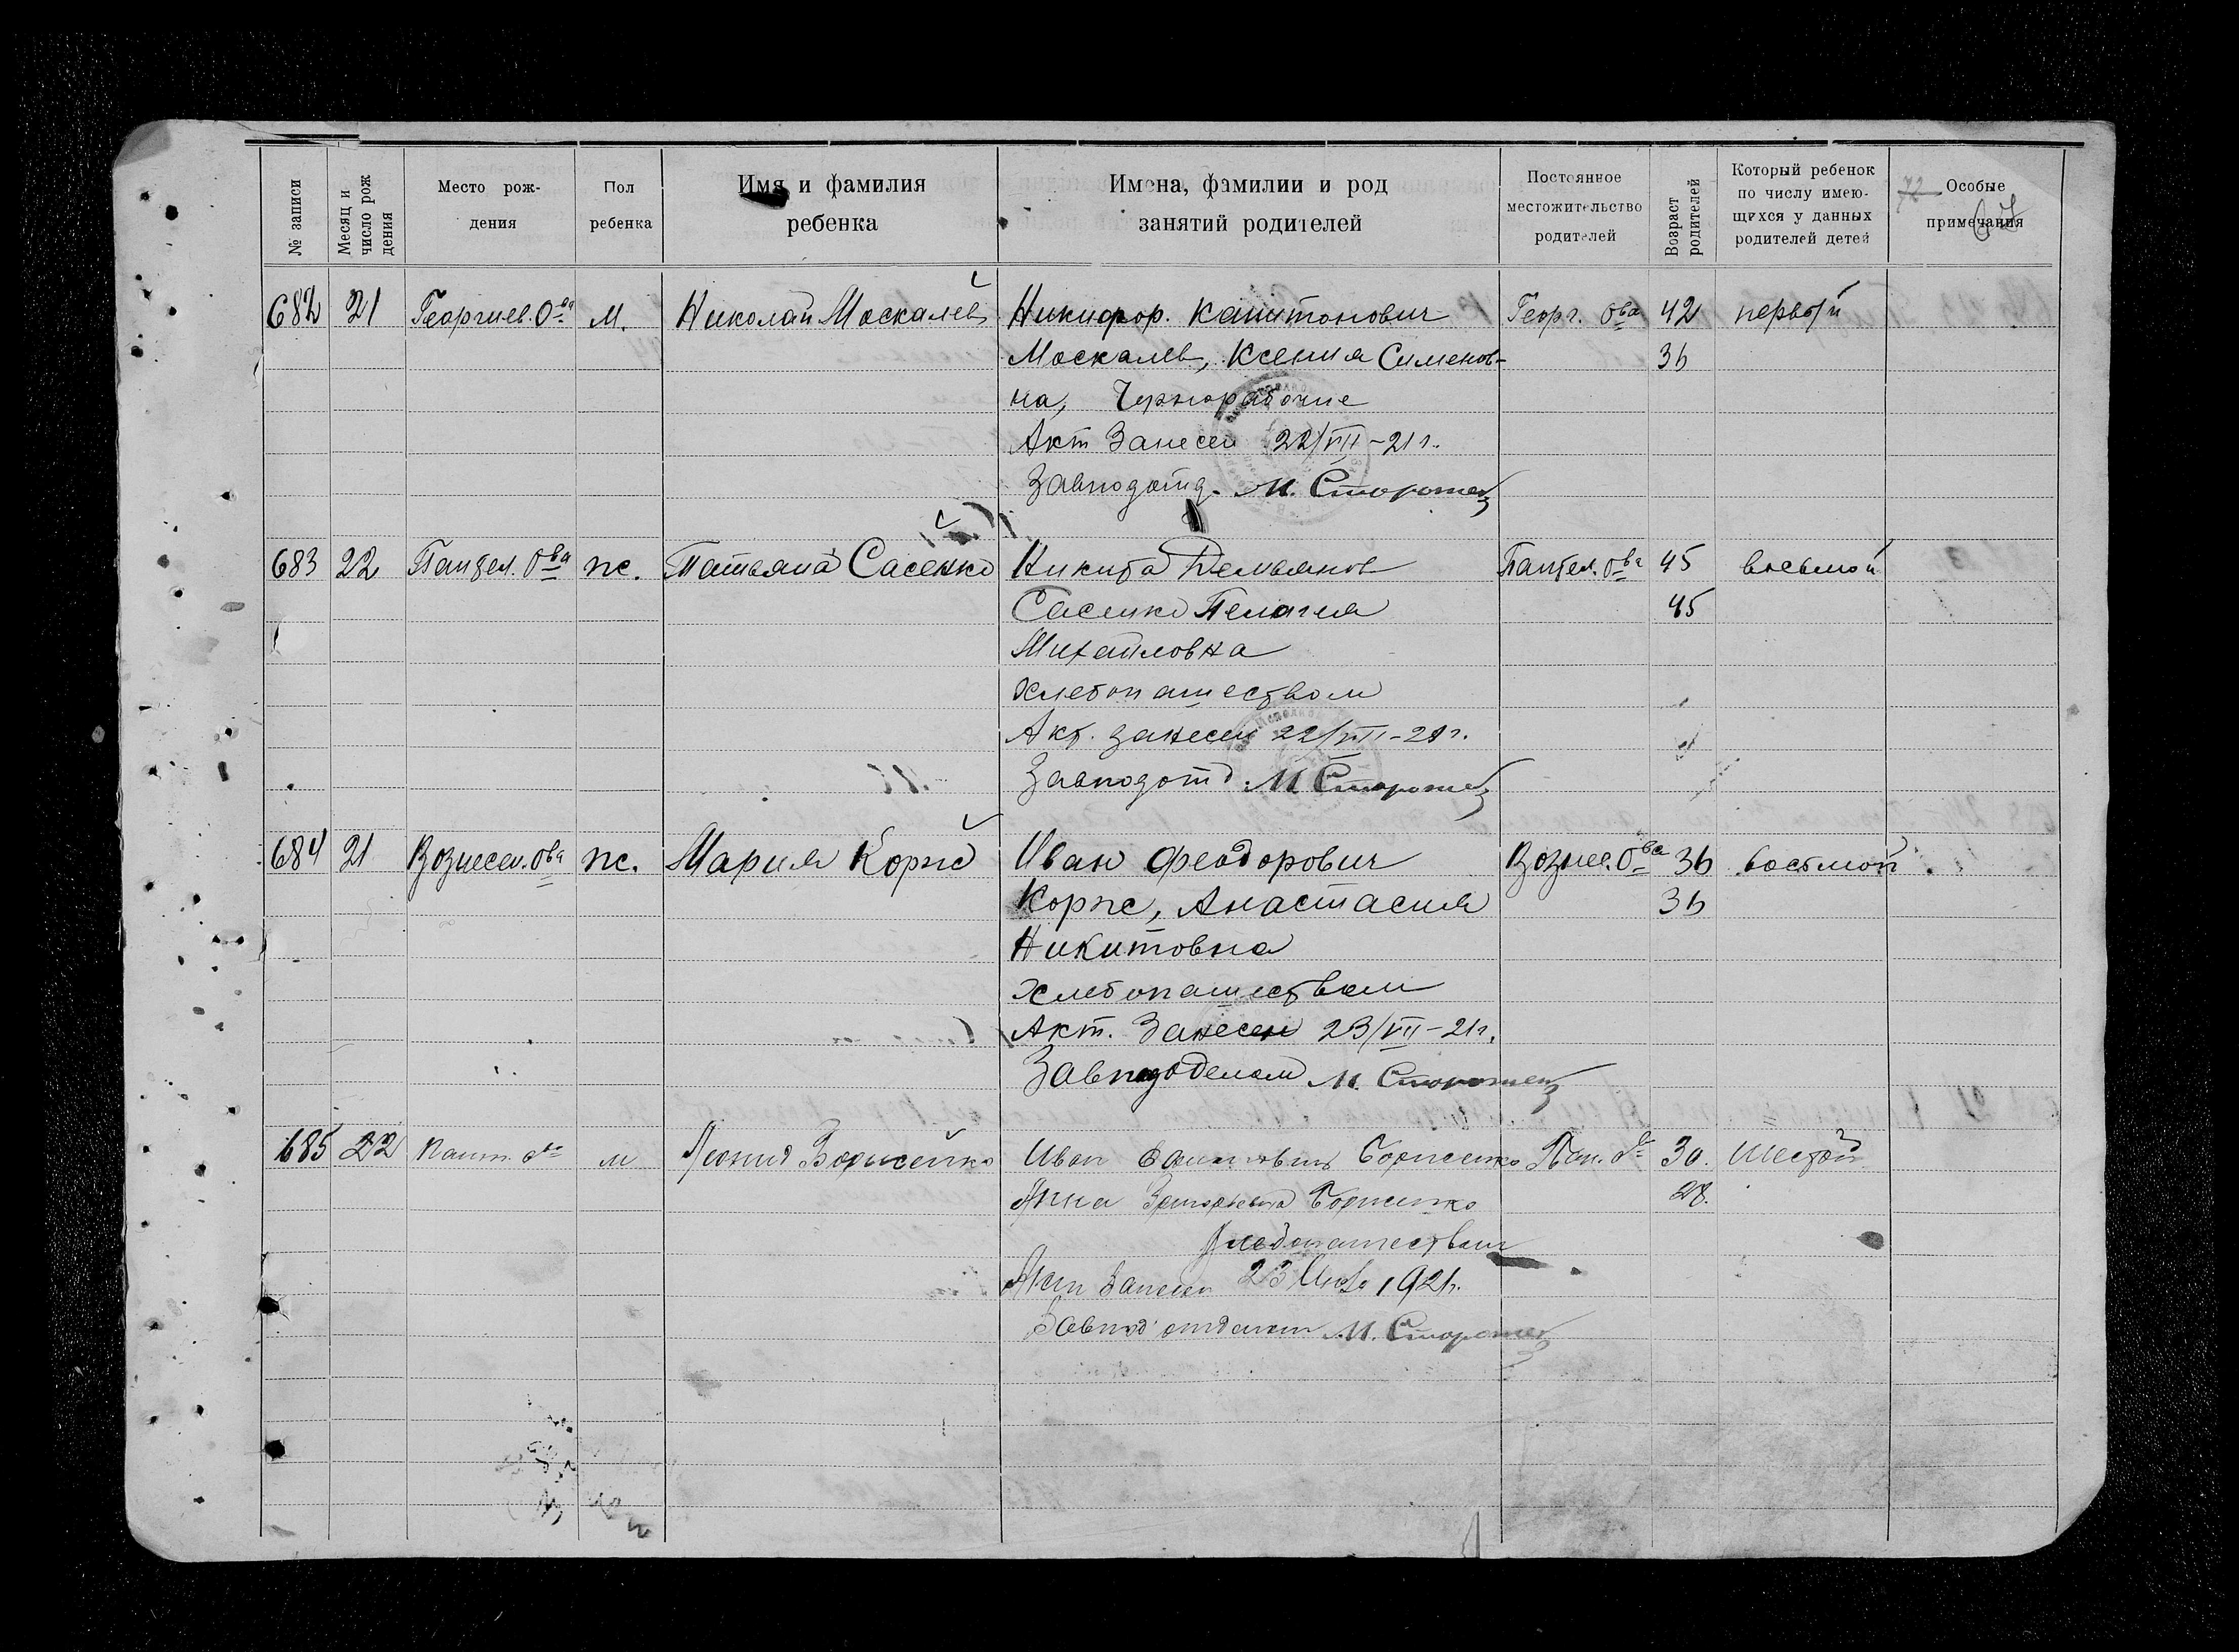 № записи
Месяц и число рож дения
Место рож-
дения
Пол
ребенка
Имя и фамилия
ребенка
Имена, фамилии и род
занятий родителей
Постоянное
местожительство
родителей
Возраст
родителей
Который ребенок
по числу имею-
щихся у данных
родителей детей
72
Особые
примечания
682 21 Георгиев. Ова м. Николай Москалев Никифор. Капитонович Георг. Ова 42 первый
Москалев, Ксения Сименов- 36
на, Чернорабочие
Акт Занесен 22/VII-21 г.
Завподотд. М. Сторожец
683 22 Пантел. Ова ж. Татьяна Сасенко Никита Демьянов Пантел. Ова 45 восьмой
Сасенко Пелагея 45
Михайловна
хлебопашеством
Акт. занесен 22/VII-21 г.
Завподотд. М. Сторожец
684 21 Вознесен. Ова ж. Мария Корж Иван Феодорович Вознес. Ова 36 востмой
Корж, Анастасия 36
Никитовна
хлебопашеством
Акт. Занесен 23/VII-21 г.
Завподотделом М. Сторожец
685 22 Пант. Ова м Леонид Борисенко Иван Борисенко Пан. Ова 30. Шестой
Анна Григорьевна Борисенко 28.
Хлебопашеством
Акт Занесен 23 Июля 1921 г.
Завпод отделом М. Сторожец